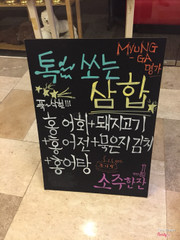 MYUNG
-GA
명가
톡 쏘는
삼합
홍어회+돼지고기
+홍어전+묵은지 김치
+홍어탕
소주한잔